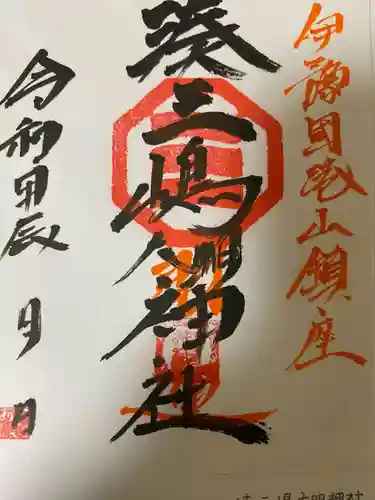 伊豫国港山鎮座
湊三嶋大明神社
令和甲辰 月 日